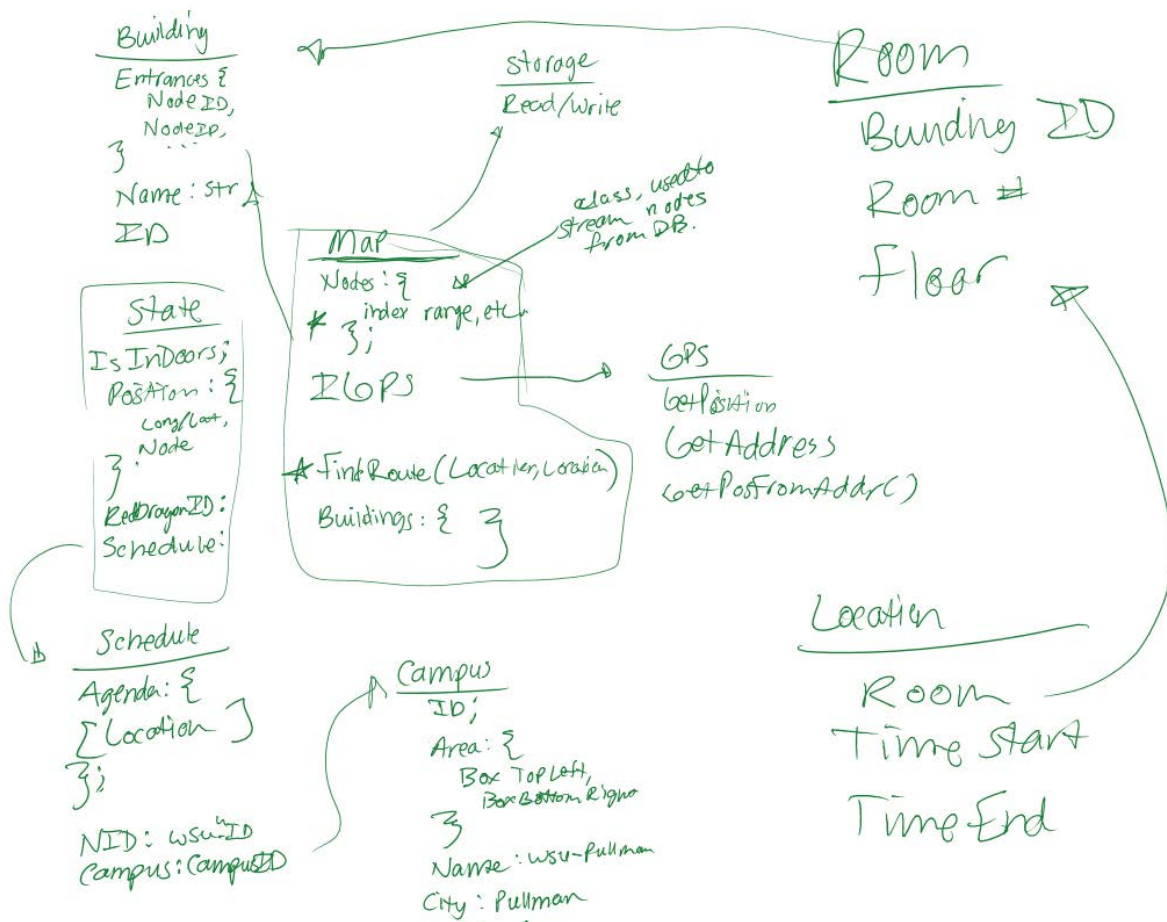 Building
Entrances {
NodeID,
NodeID,
...
}
Name: str
ID
storage
Read/Write
Room
Bunding ID
Room #
Floor
class, used to
stream nodes
from DB.
Map
Nodes: {
index range, etc.
* };
IGPS
* FindRoute(Location, Location)
Buildings: { }
GPS
GetPosition
GetAddress
GetPosFromAddr()
State
IsInDoors;
Position: {
Long/Lat,
Node
}
RedDragonID:
Schedule:
Schedule
Agenda: {
[Location]
};
NID: wsu ID
Campus: CampusID
Campus
ID;
Area: {
Box Top Left,
Box Bottom Right
}
Name: wsu-Pullman
City: Pullman
Location
Room
Time Start
Time End